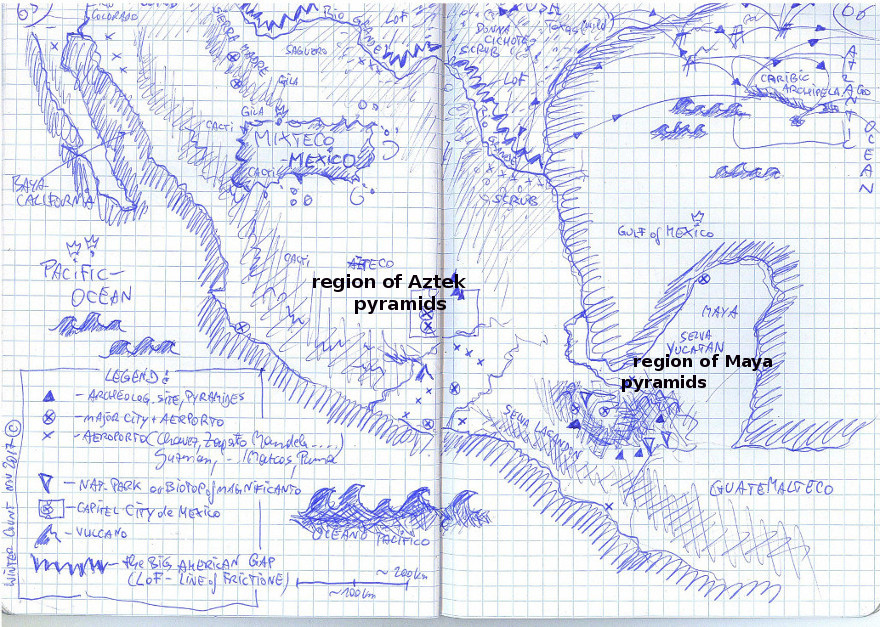 COLORADO
SIERRA MADRE
RIO GRANDE
LOF
SAGUERO
GILA
GILA
CACTI
MIXTECO
-MEXICO
CACTI
BAYA-
CALIFORNIA
PACIFIC-
OCEAN
CACTI
AZTECO
region of Aztek
pyramids
DONNA
CICHOTE
SCRUB
LOF
SCRUB
CARIBIC
ARCHIPELAGO
ATLANTIC
OCEAN
GULF of MEXICO
MAYA
SELVA
YUCATAN
region of Maya
pyramids
SELVA LACANDON
GUATEMALTECO
LEGEND:
- ARCHEOLOG. SITE, PYRAMIDES
- MAJOR CITY + AERPORTO
- AEROPORTO (Chavez, Zapato Mandela ....)
- NAT. PARK or BIOTOP of MAGNIFICANTO
- CAPITEL CITY de MEXICO
- VULCANO
- the BIG AMERICAN GAP
(LOF - LINE of FRICTIONE)
WINTER COUNT NOV 2017 ©
OCEANO PACIFICO
~ 200 km
~ 100 km